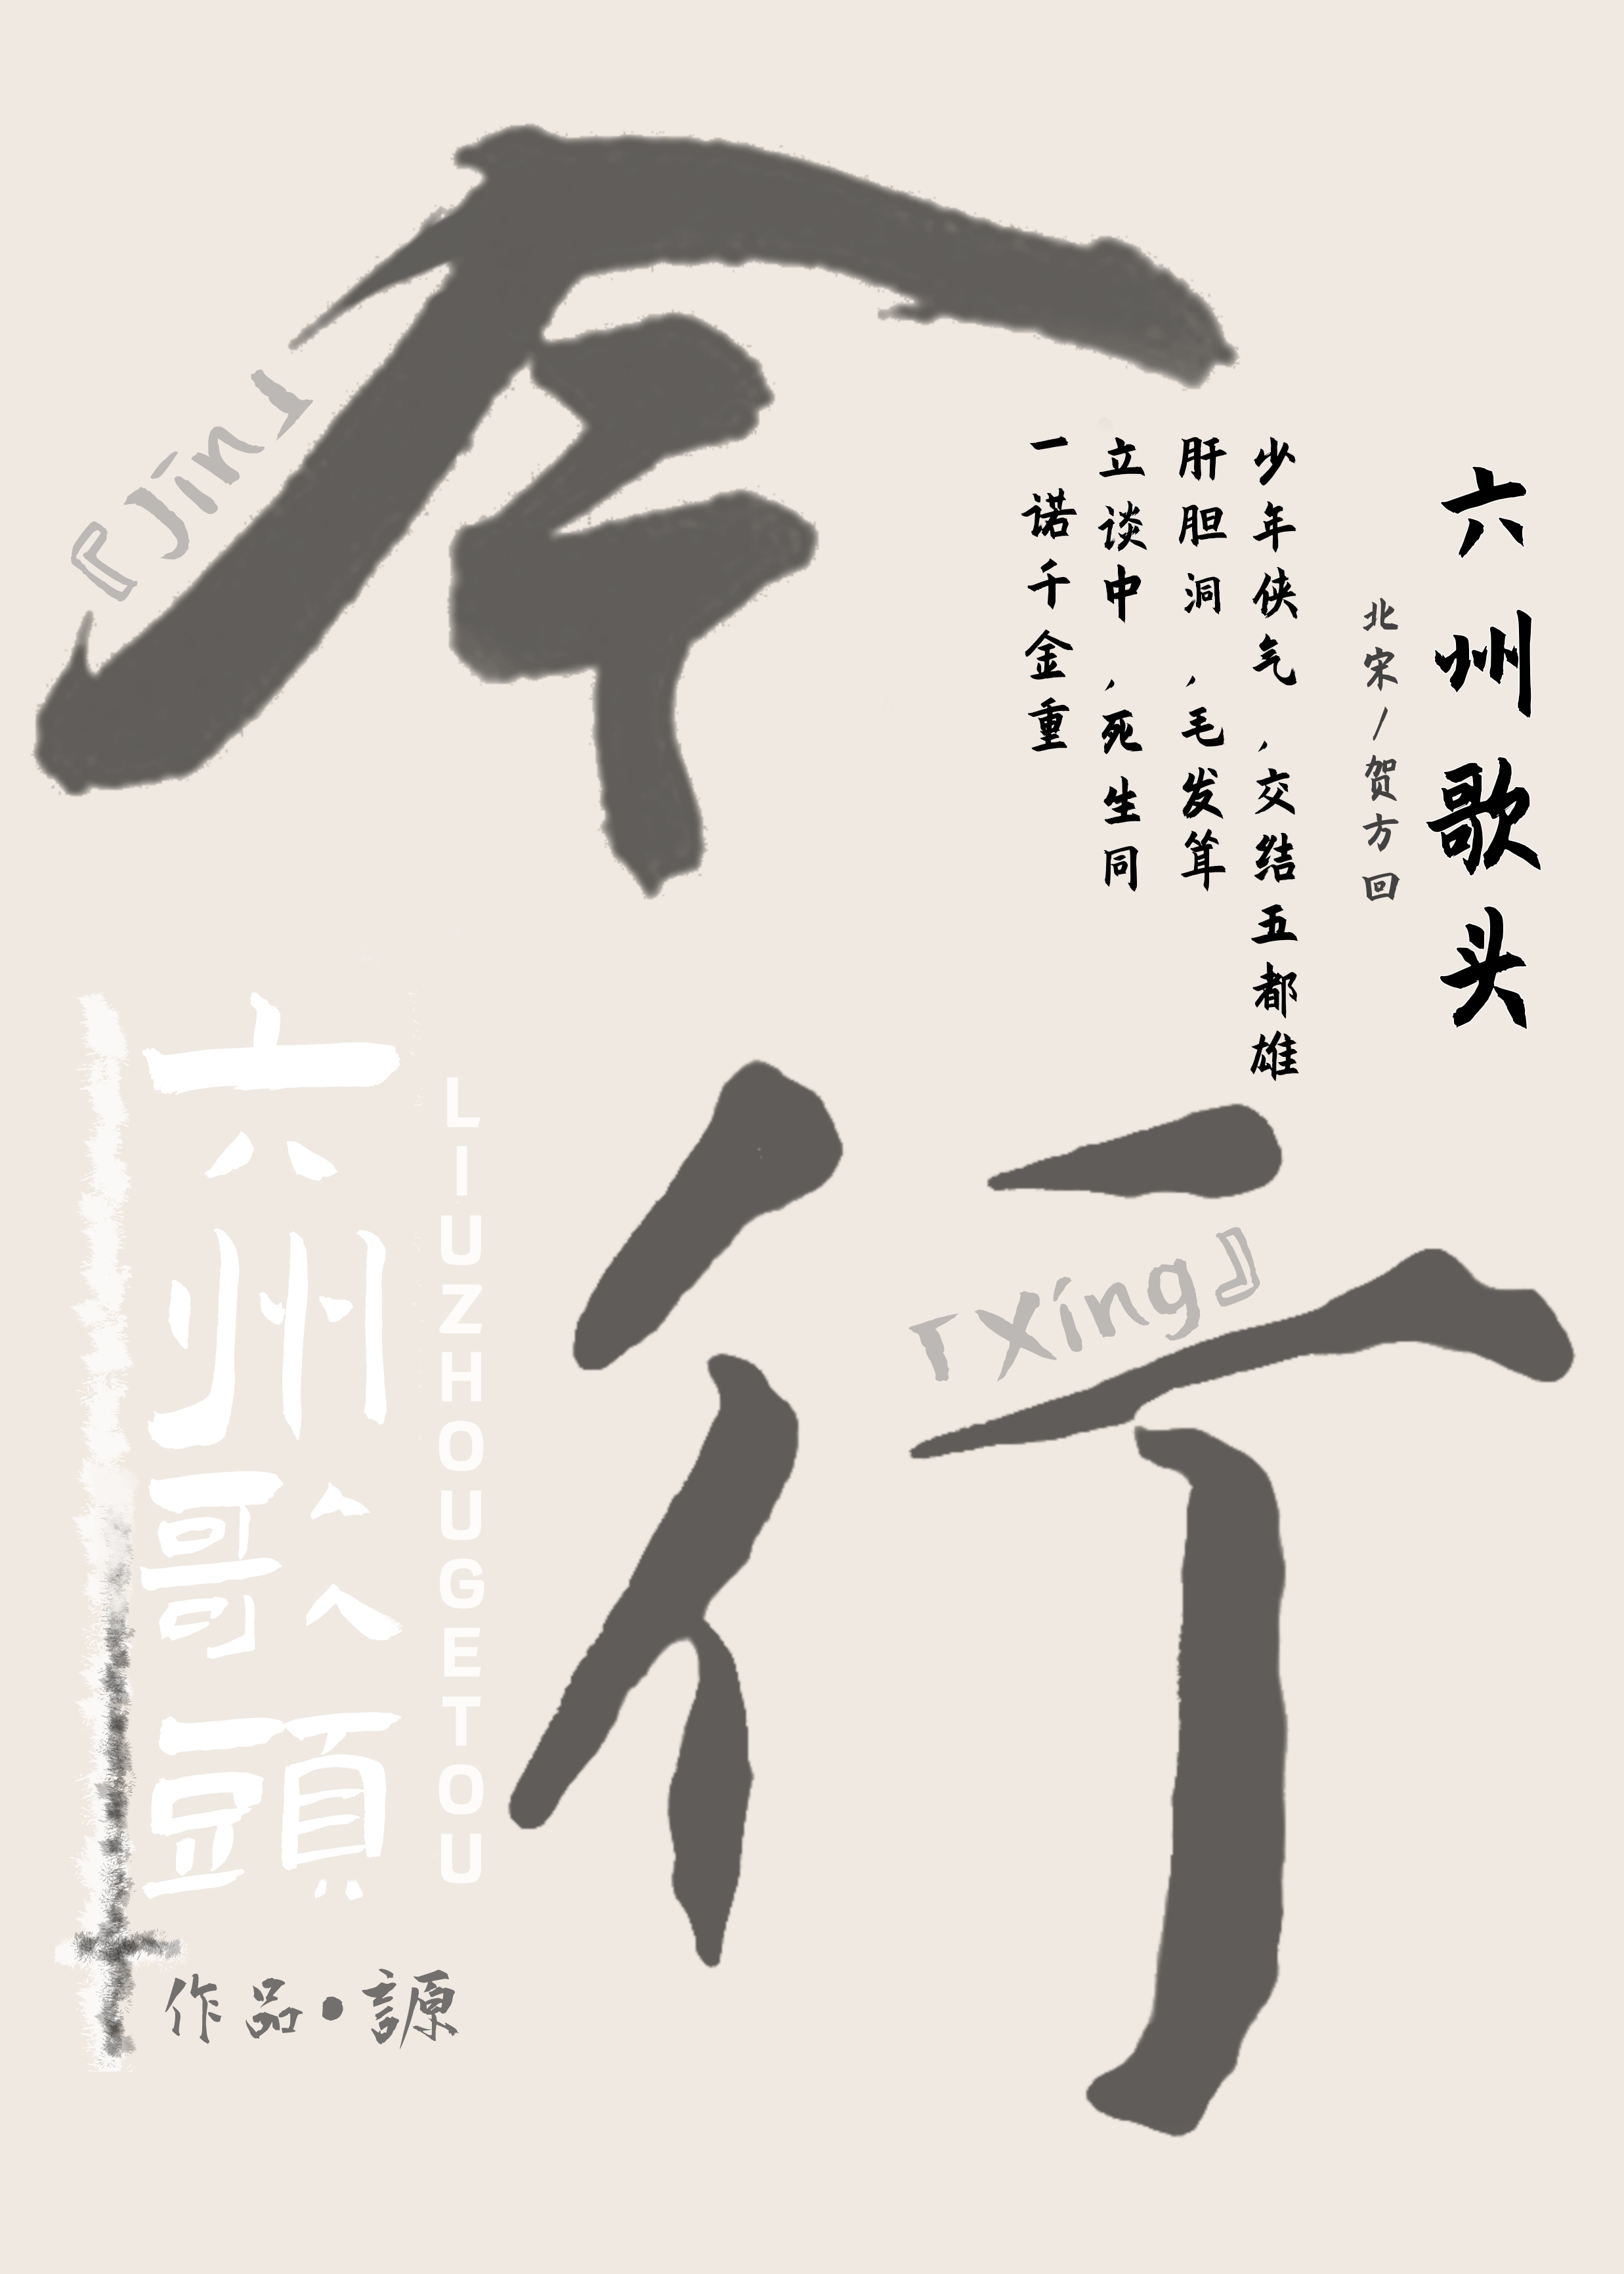 今
『Jin』
六州歌头
北宋/贺方回
少年侠气,交结五都雄
肝胆洞,毛发耸
立谈中,死生同
一诺千金重
行
『Xíng』
六州歌頭
LIUZHOUGETOU
作品·謜